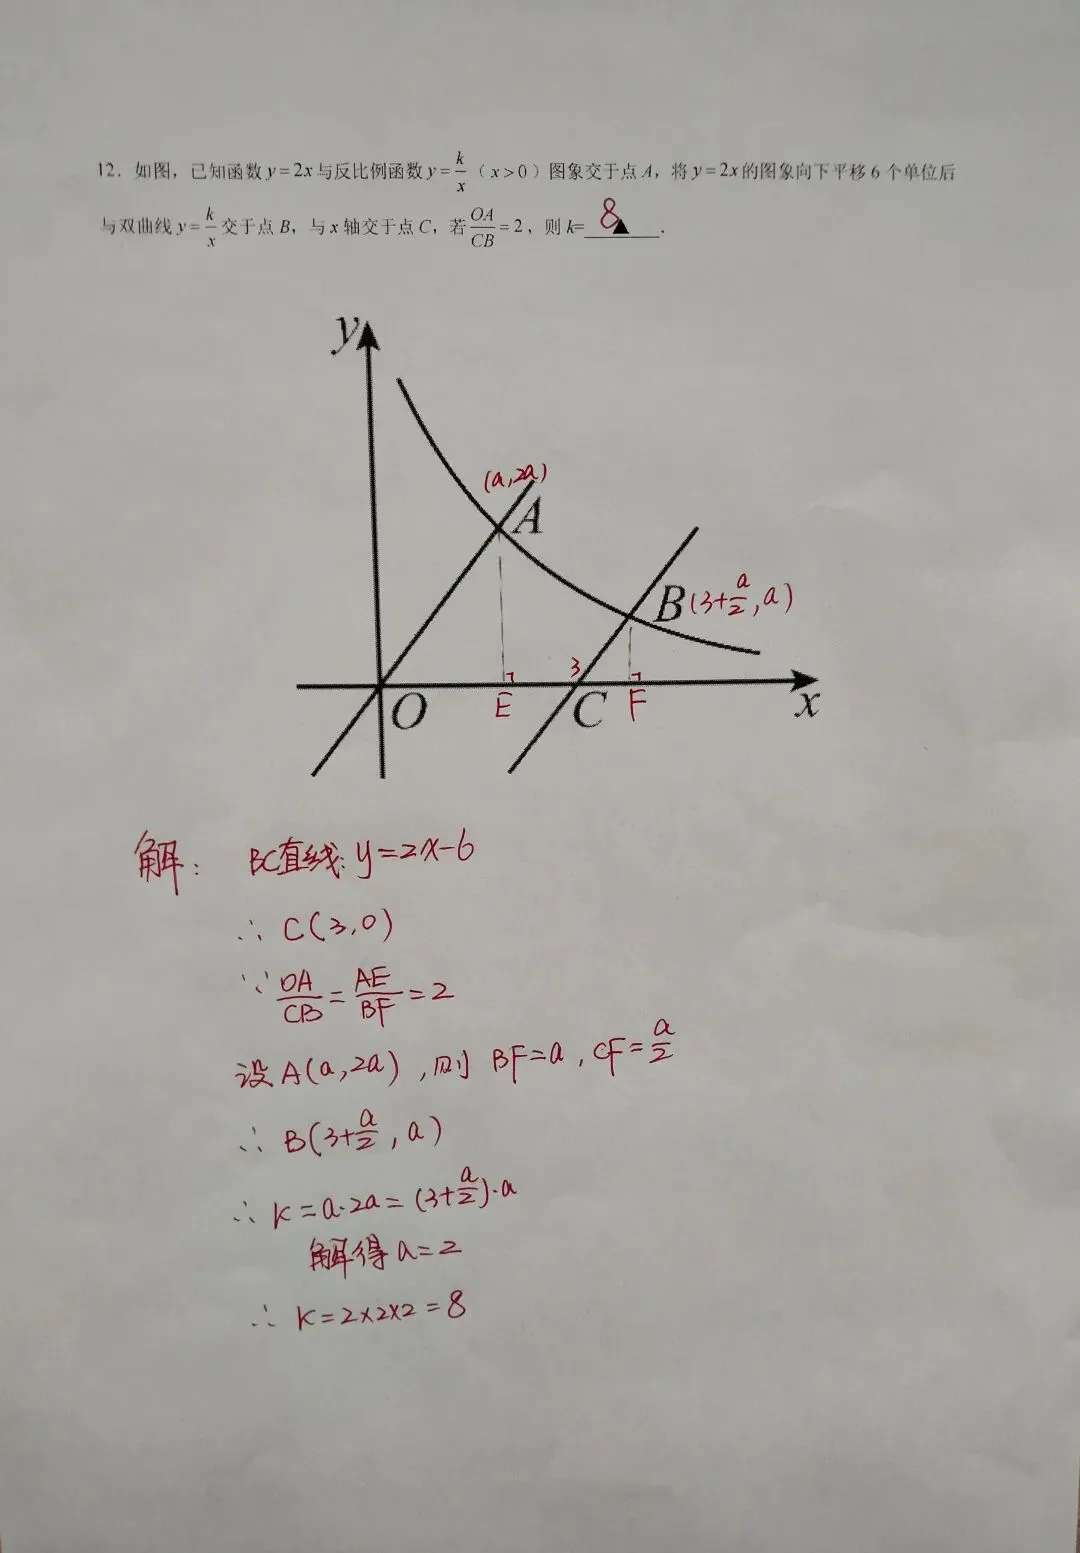 12. 如图，已知函数 y=2x 与反比例函数 y=k/x（x>0）图象交于点 A，将 y=2x 的图象向下平移 6 个单位后
与双曲线 y=k/x 交于点 B，与 x 轴交于点 C，若 OA/CB=2，则 k= 8▲.
y
(a,2a)
A
B(3+a/2,a)
3
O E C F x
解: BC直线: y=2x-6
∴ C(3,0)
∵ OA/CB=AE/BF=2
设 A(a,2a), 则 BF=a, CF=a/2
∴ B(3+a/2, a)
∴ K=a·2a=(3+a/2)·a
解得 a=2
∴ K=2×2×2=8